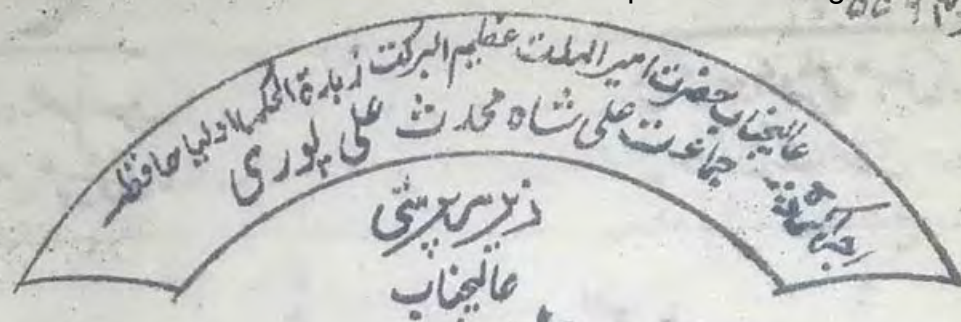 عالیجناب حضرت امیر الملت عظیم البرکت زبدۃ الحکماء اولیا حافظ
جماعت علی شاہ محدث علی پوری
زیر سرپرستی
عالیجناب